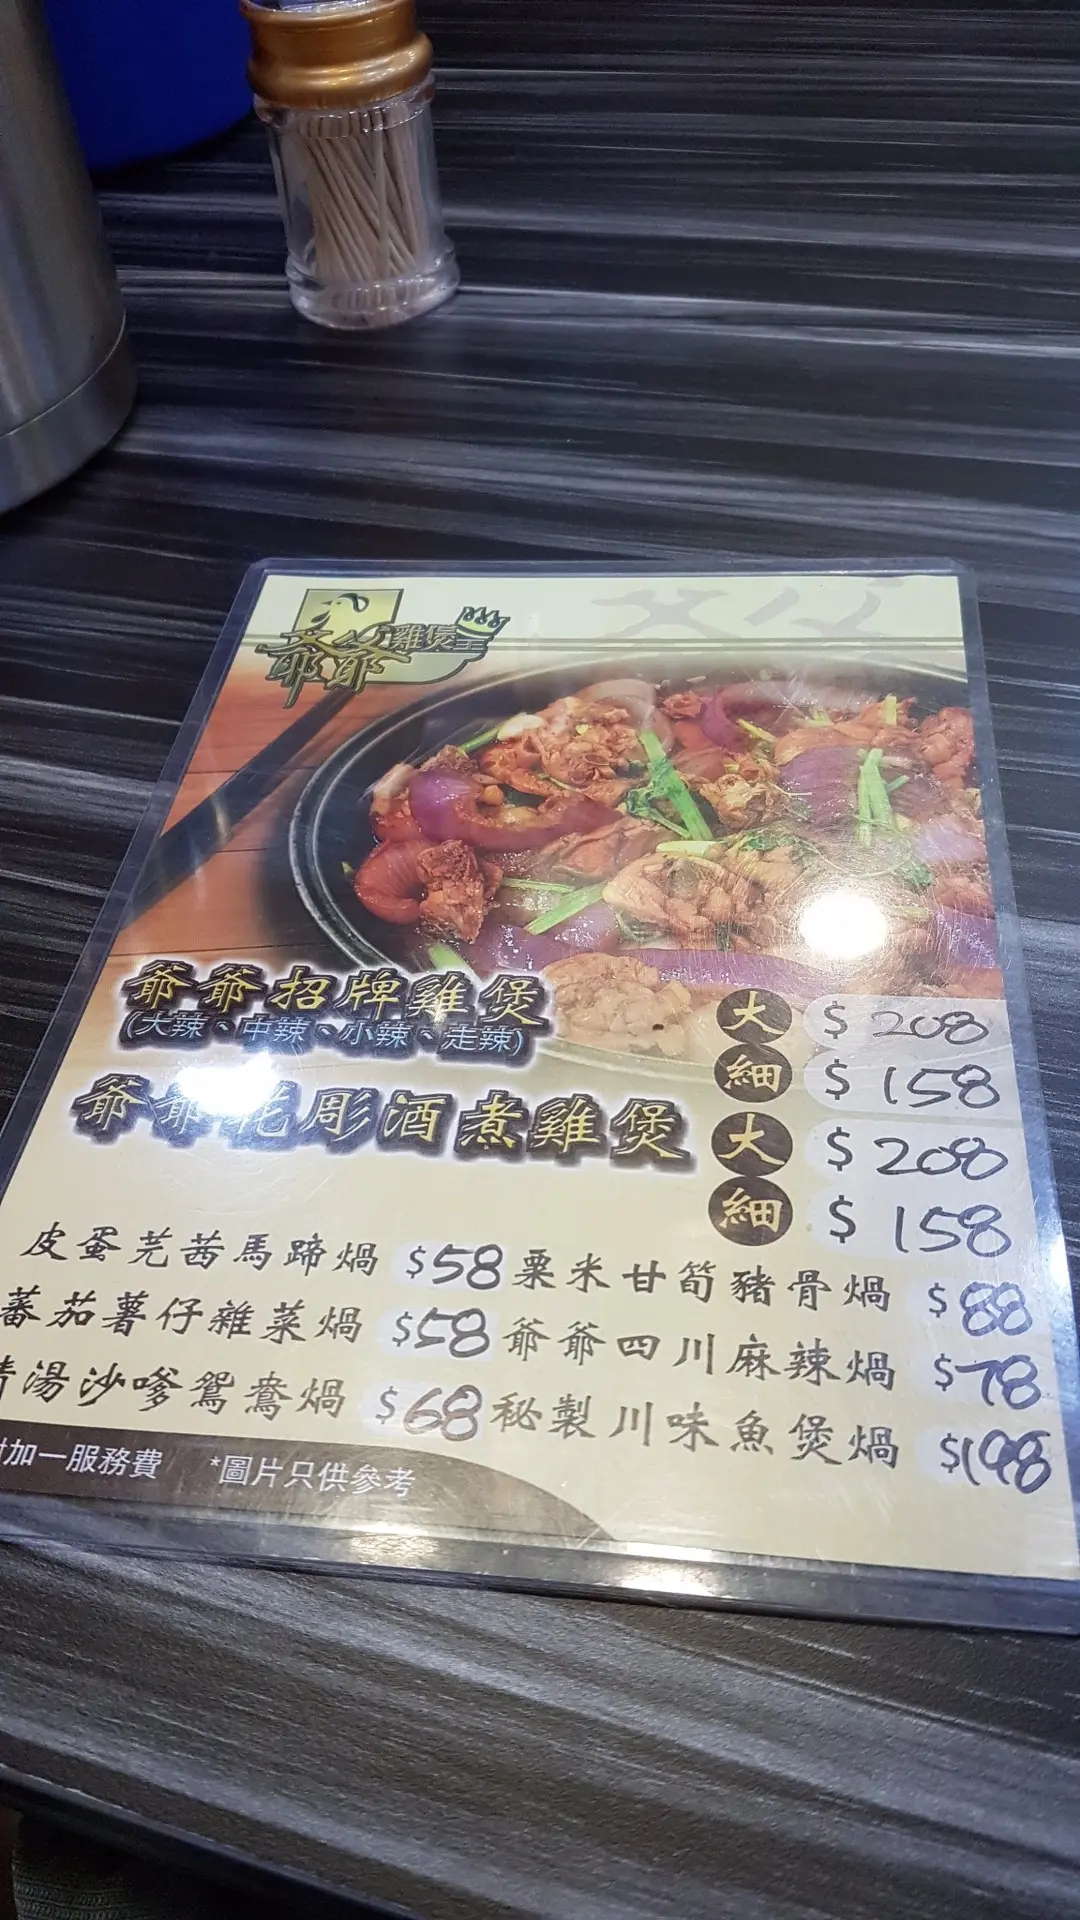 爺爺雞煲王
爺爺招牌雞煲 大 $ 208
(大辣、中辣、小辣、走辣) 細 $ 158
爺爺花彫酒煮雞煲 大 $ 208
細 $ 158
皮蛋芫茜馬蹄煱 $58 粟米甘筍豬骨煱 $88
蕃茄薯仔雜菜煱 $58 爺爺四川麻辣煱 $78
清湯沙嗲鴛鴦煱 $68 秘製川味魚煲煱 $198
加一服務費 *圖片只供參考